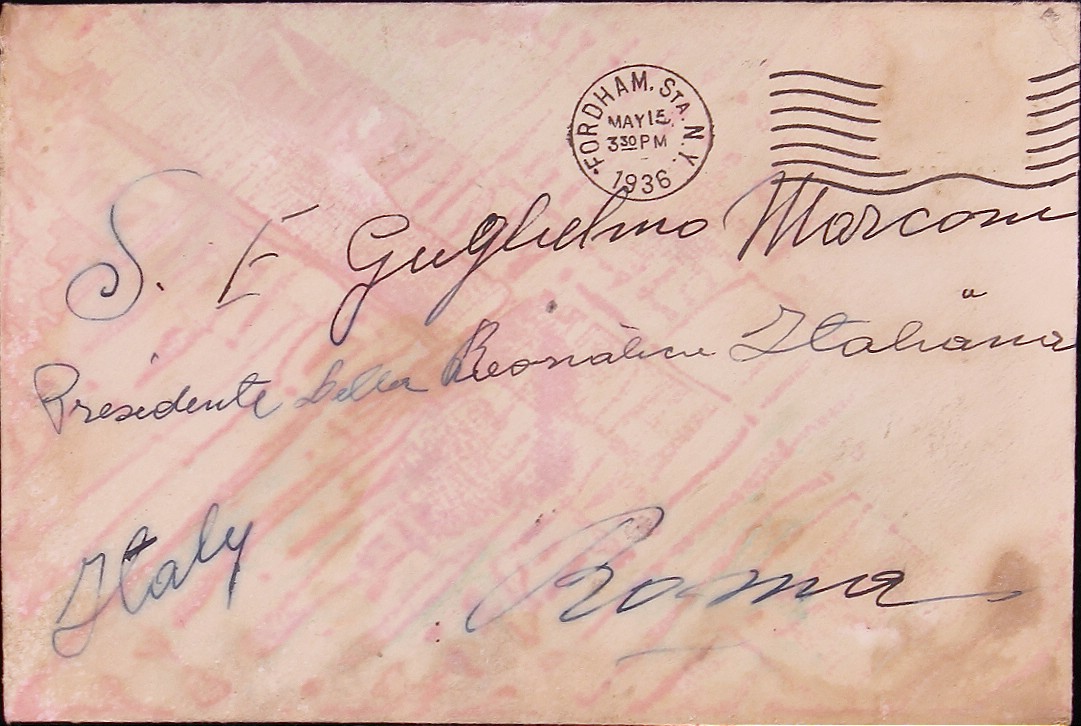 FORDHAM. STA. N.Y.
MAY 15
3 30 PM
1936
S. E Guglielmo Marconi
Presidente Della Italiana
Italy
Roma